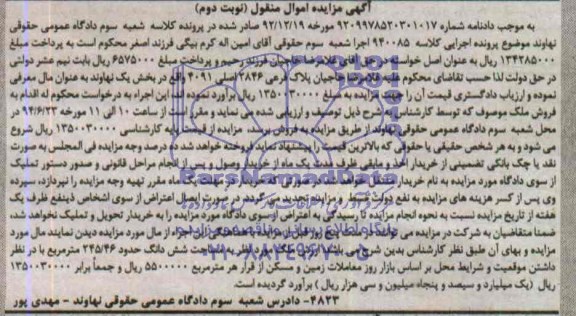 آگهی مزایده اموال منقول (نوبت دوم)
به موجب دادنامه شماره ۹۲۰۹۹۷۸۵۲۰۳۰۱۰۱۷ مورخه ۹۲/۱۲/۱۹ صادر شده در پرونده کلاسه شعبه سوم دادگاه عمومی حقوقی
نهاوند موضوع پرونده اجرایی کلاسه ۹۴۰۰۸۵ اجرا شعبه سوم حقوقی آقای امین اله کرم بیگی فرزند اصغر محکوم است به پرداخت مبلغ
۱۳۴۲۸۵۰۰۰ ریال به عنوان اصل خواسته در حق آقای غلامرضا حاجیان فرزند رحیم و پرداخت مبلغ ۶۵۷۵۰۰۰ ریال بابت نیم عشر دولتی
در حق دولت لذا حسب تقاضای محکوم علیه غلامرضا حاجیان پلاک فرعی ۳۸۴۶ اصلی ۴۰۹۱ واقع در بخش یک نهاوند به عنوان مال معرفی
نموده و ارزیاب دادگستری قیمت آن را جهت مزایده به مبلغ ۱۳۵۰۰۳۰۰۰۰ ریال برآورد نموده اند، این اجراء به درخواست محکوم له اقدام به
فروش ملک موصوف که توسط کارشناس به شرح ذیل توصیف و ارزیابی شده می نماید و مقرر است از ساعت ۱۰ الی ۱۱ مورخه ۹۴/۶/۲۳ در
محل شعبه سوم دادگاه عمومی حقوقی نهاوند از طریق مزایده به فروش برسد، مزایده از قیمت پایه کارشناسی ۱۳۵۰۰۳۰۰۰۰ ریال شروع
می شود و به هر شخص حقیقی یا حقوقی که بالاترین قیمت را پیشنهاد نماید فروخته خواهد شد ۱۰ درصد وجه مزایده فی المجلس به صورت
نقد یا چک بانکی تضمینی از خریدار اخذ و مابقی ظرف مدت یک ماه از خریدار وصول و پس از انجام مراحل قانونی و صدور دستور تملیک
از سوی دادگاه مورد مزایده به نام خریدار منتقل خواهد شد در صورتی که خریدار در مهلت یک ماه مقرر بقیه وجه مزایده را نپردازد، سپرده
وی پس از کسر هزینه های مزایده به نفع دولت ضبط و مزایده تجدید می گردد، در صورت وصول اعتراض از سوی اشخاص ذینفع ظرف یک
هفته از تاریخ مزایده نسبت به نحوه انجام مزایده تا رسیدگی به اعتراض از سوی دادگاه مورد مزایده به خریدار تحویل و تملیک نخواهد شد
ضمنا متقاضیان به شرکت در مزایده می توانند پنج روز قبل از مزایده با هماهنگی این اجراء از مال مورد مزایده دیدن نمایند مال مورد
مزایده و بهای آن طبق نظر کارشناس بدین شرح می باشد: به مساحت شش دانگ حدود ۲۴۵/۴۶ مترمربع با در نظر
داشتن موقعیت و شرایط محل بر اساس بازار روز معاملات زمین و مسکن از قرار هر مترمربع ۵۵۰۰۰۰۰ ریال و جمعاً برابر ۱۳۵۰۰۳۰۰۰۰
ریال (یک میلیارد و سیصد و پنجاه میلیون و سی هزار ریال) برآورد گردیده است.
۴۸۲۳- دادرس شعبه سوم دادگاه عمومی حقوقی نهاوند - مهدی پور
ParsNamadData
۰۲۱-۸۸۳۴۹۶۷۰-۵